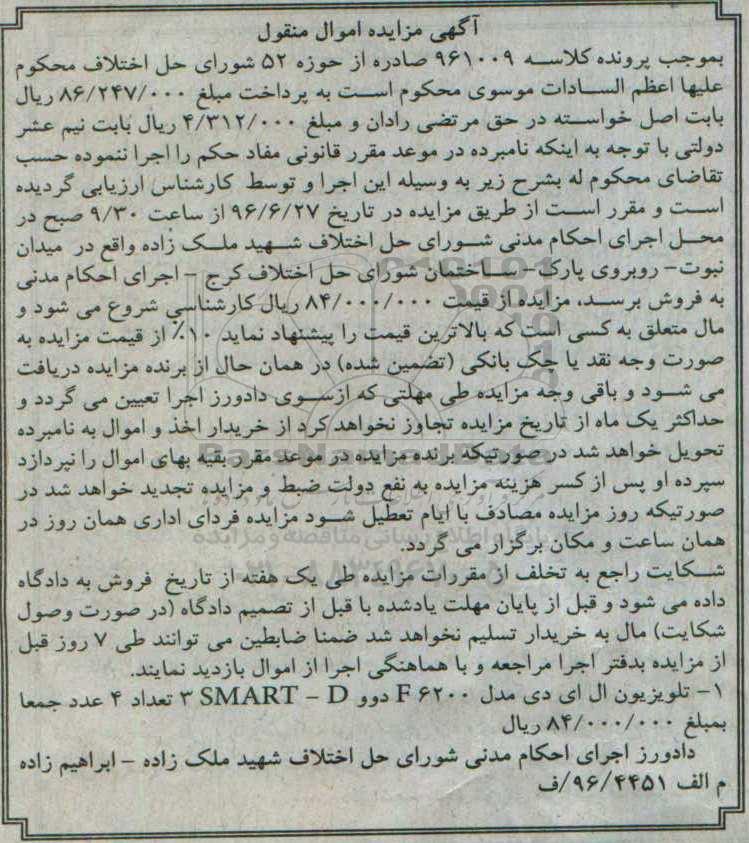 آگهی مزایده اموال منقول
بموجب پرونده کلاسه ۹۶۱۰۰۹ صادره از حوزه ۵۲ شورای حل اختلاف محکوم
علیها اعظم السادات موسوی محکوم است به پرداخت مبلغ ۸۶/۲۴۷/۰۰۰ ریال
بابت اصل خواسته در حق مرتضی رادان و مبلغ ۴/۳۱۲/۰۰۰ ریال بابت نیم عشر
دولتی با توجه به اینکه نامبرده در موعد مقرر قانونی مفاد حکم را اجرا ننموده حسب
تقاضای محکوم له بشرح زیر به وسیله این اجرا و توسط کارشناس ارزیابی گردیده
است و مقرر است از طریق مزایده در تاریخ ۹۶/۶/۲۷ از ساعت ۹/۳۰ صبح در
محل اجرای احکام مدنی شورای حل اختلاف شهید ملک زاده واقع در میدان
نبوت- روبروی پارک- ساختمان شورای حل اختلاف کرج - اجرای احکام مدنی
به فروش برسد، مزایده از قیمت ۸۴/۰۰۰/۰۰۰ ریال کارشناسی شروع می شود و
مال متعلق به کسی است که بالاترین قیمت را پیشنهاد نماید ۱۰٪ از قیمت مزایده به
صورت وجه نقد یا چک بانکی (تضمین شده) در همان حال از برنده مزایده دریافت
می شود و باقی وجه مزایده طی مهلتی که ازسوی دادورز اجرا تعیین می گردد و
حداکثر یک ماه از تاریخ مزایده تجاوز نخواهد کرد از خریدار اخذ و اموال به نامبرده
تحویل خواهد شد در صورتیکه برنده مزایده در موعد مقرر بقیه بهای اموال را نپردازد
سپرده او پس از کسر هزینه مزایده به نفع دولت ضبط و مزایده تجدید خواهد شد در
صورتیکه روز مزایده مصادف با ایام تعطیل شود مزایده فردای اداری همان روز در
همان ساعت و مکان برگزار می گردد.
شکایت راجع به تخلف از مقررات مزایده طی یک هفته از تاریخ فروش به دادگاه
داده می شود و قبل از پایان مهلت یادشده با قبل از تصمیم دادگاه (در صورت وصول
شکایت) مال به خریدار تسلیم نخواهد شد ضمنا ضابطین می توانند طی ۷ روز قبل
از مزایده بدفتر اجرا مراجعه و با هماهنگی اجرا از اموال بازدید نمایند.
۱- تلویزیون ال ای دی مدل F۶۲۰۰ دوو SMART - D ۳ تعداد ۴ عدد جمعا
بمبلغ ۸۴/۰۰۰/۰۰۰ ریال
دادورز اجرای احکام مدنی شورای حل اختلاف شهید ملک زاده - ابراهیم زاده
م الف ۹۶/۴۴۵۱/ف